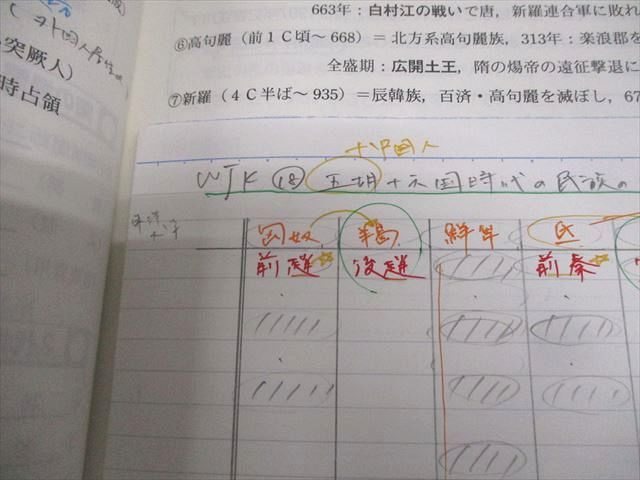 663年：白村江の戦いで唐，新羅連合軍に敗れ
⑥高句麗（前１C頃～668）＝北方系高句麗族，313年：楽浪郡を
全盛期：広開土王，隋の煬帝の遠征撃退に
⑦新羅（４C半ば～935）＝辰韓族，百済・高句麗を滅ぼし，67
突厥人）
時占領
十中国人
WJK ⑱ 五胡十六国時代の民族の
匈奴 羯 鮮卑 氐
前趙 後趙 前秦